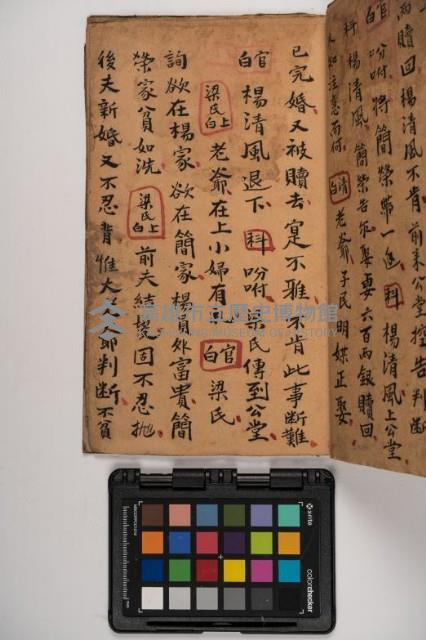 而贖回楊清風不肯前來公堂控告判斷
官白 吩咐將簡榮帶一進 科 楊清風上公堂
科 楊清風簡榮告爾娶妻六百両銀贖回
清白 老爺子民明媒正娶
已完婚又被贖去寔不雅不肯此事斷難
官白 楊清風退下 科 吩咐梁氏傳到公堂
梁氏上白 老爺在上小婦有 官白 梁氏
詢欲在楊家欲在簡家楊員外富貴簡
榮家貧如洗 梁氏上白 前夫結髮固不忍抛
後夫新婚又不忍背惟大老爺判斷不貧
高雄市立歷史博物館
KAOHSIUNG MUSEUM OF HISTORY
x-rite
colorchecker